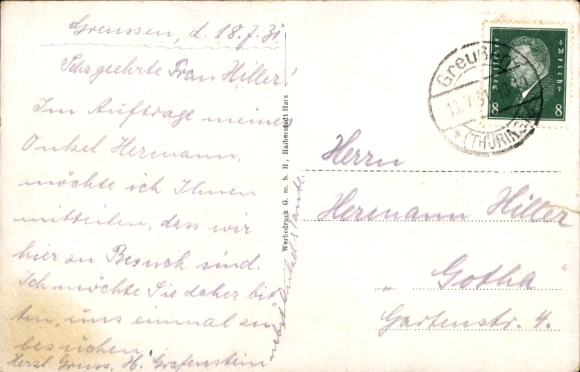 Greussen, d. 18.7.31
Sehrgeehrte Frau Hiller!
Im Auftrage meines
Onkel Hermann,
möchte ich Ihnen
mitteilen, dass wir
hier zu Besuch sind.
Ich möchte Sie daher bit
ten, uns einmal zu
besuchen.
Herzl. Gruss, H. Grafenstein
nebst Onkel u. Tante.
Werbedruck G. m. b. H., Halberstadt Harz
Deutsches Reich
8 8
Greußen
18.7.31
(THÜRINGEN)
Herrn
Hermann Hiller
„Gotha“
Gartenstr. 4.